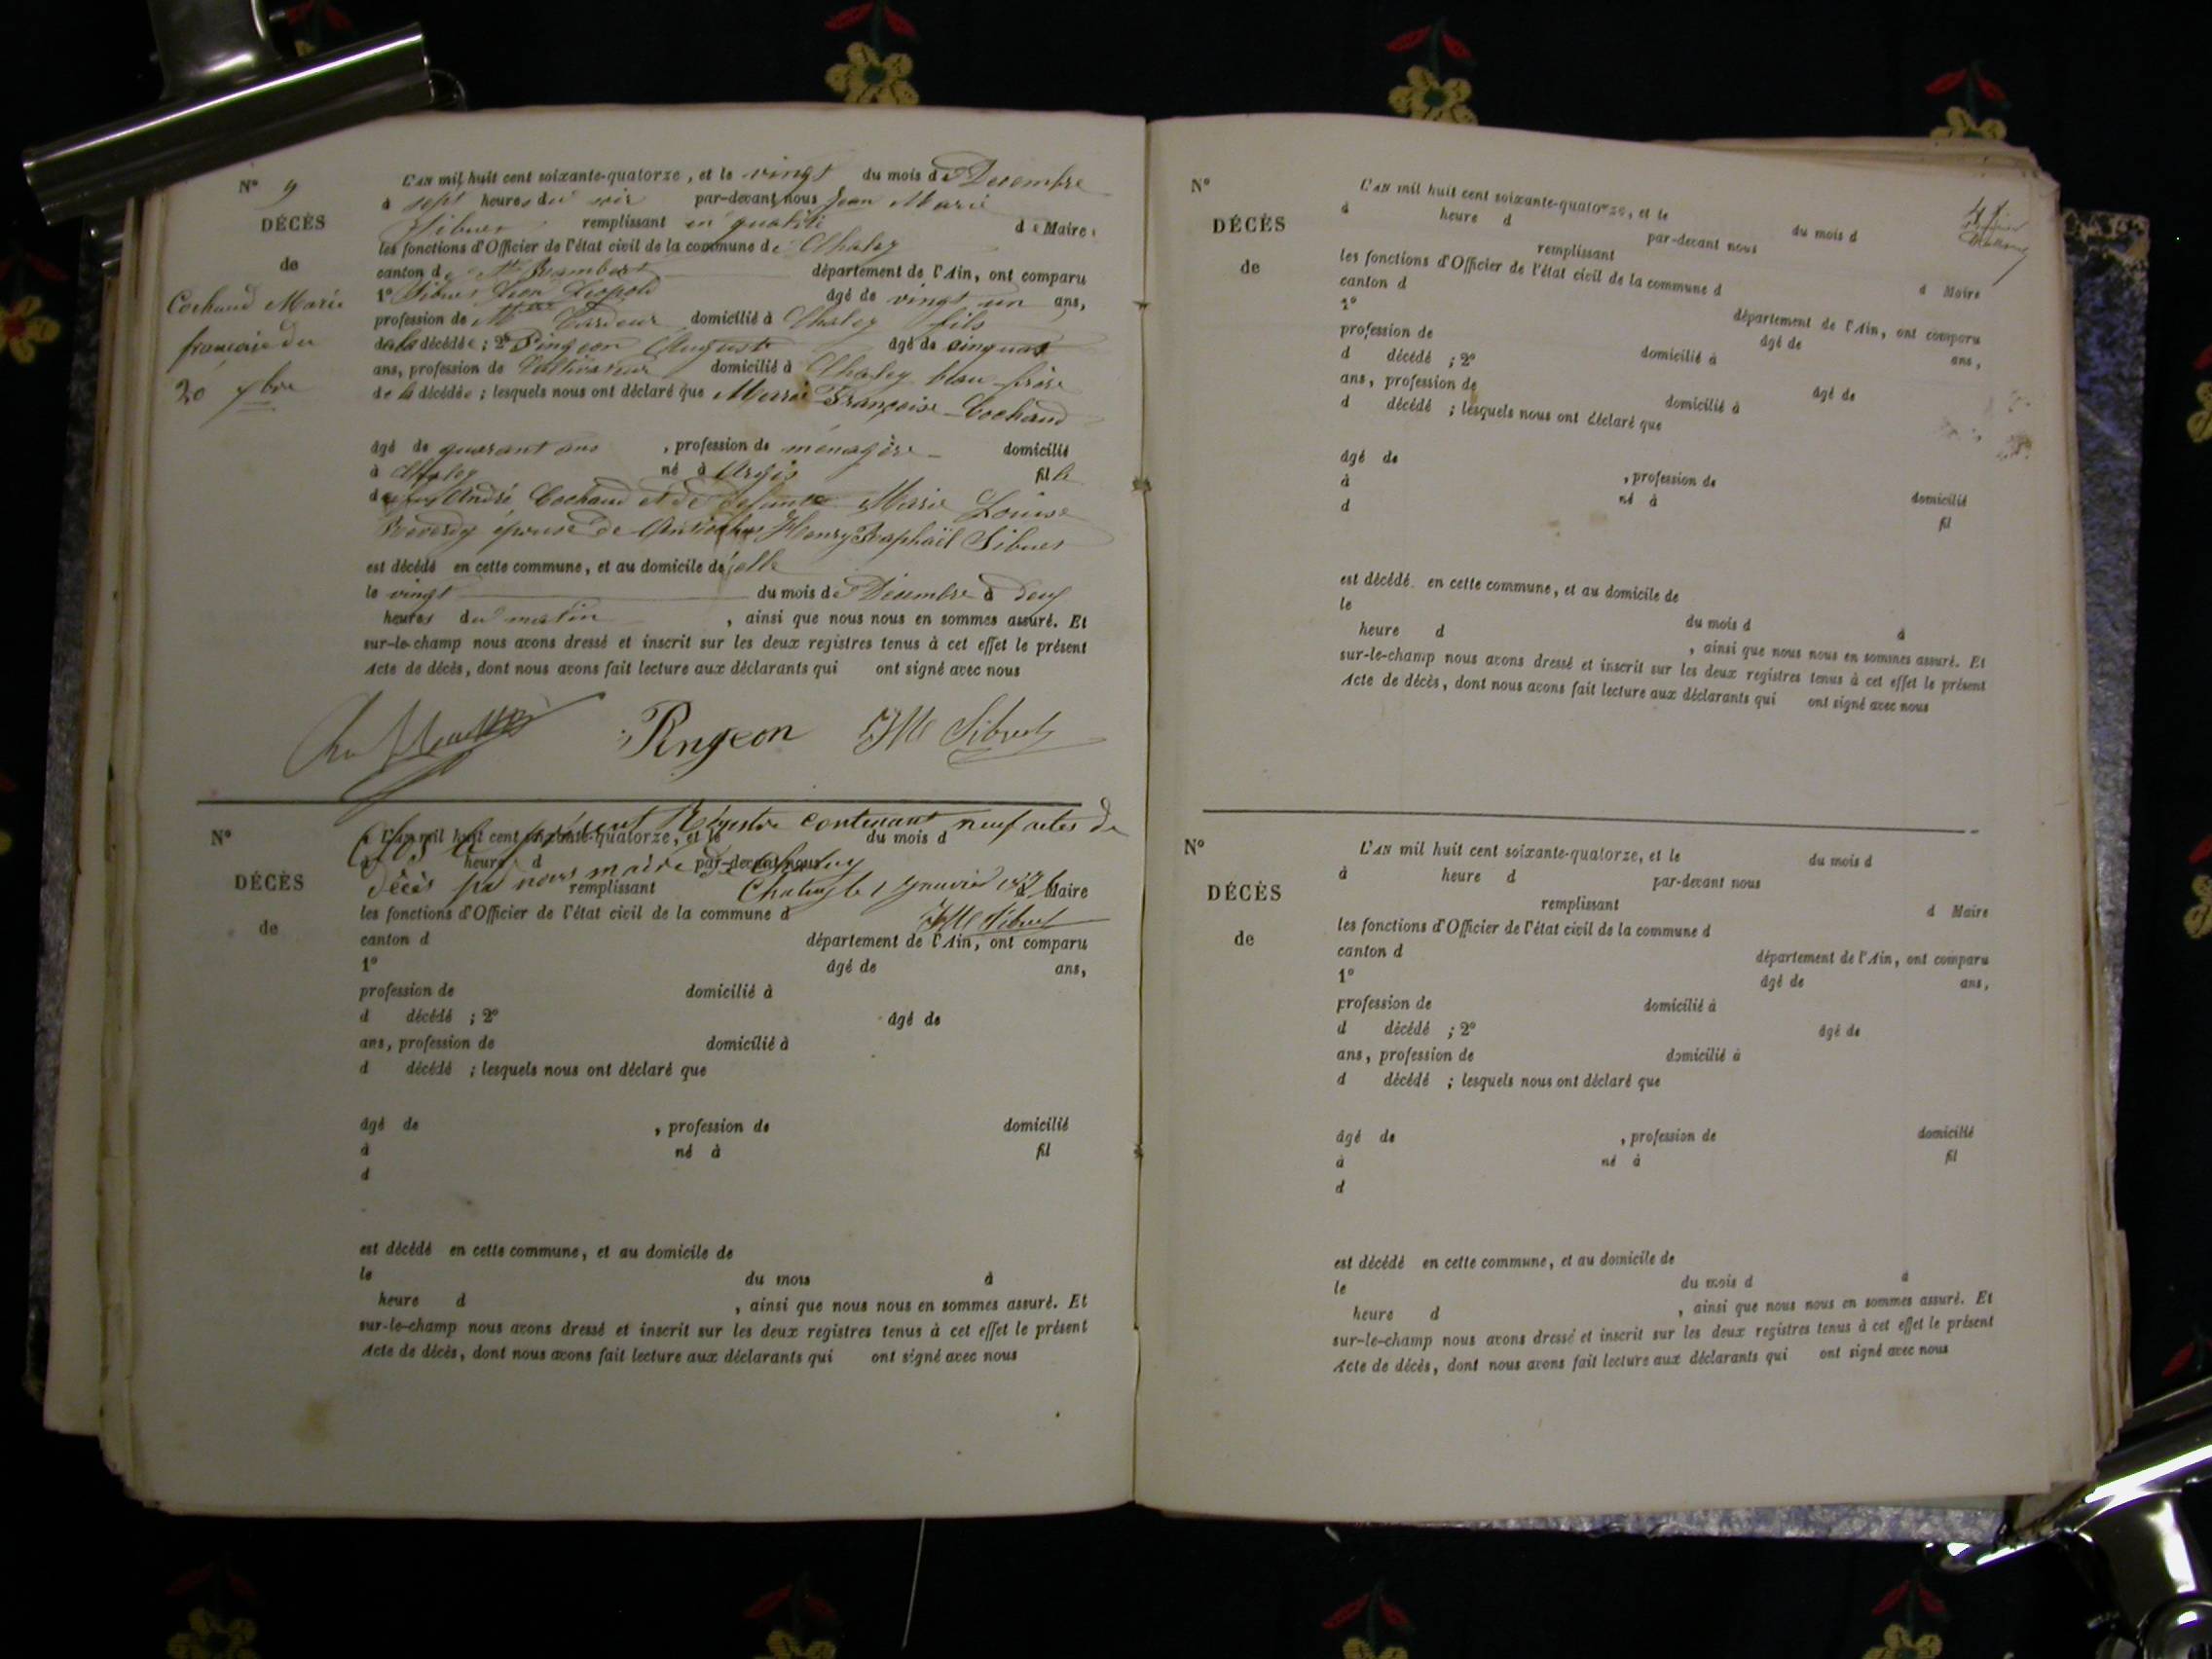 N° 9
DÉCÈS
de
Cochaud Marie
française du
20 xbre
L'AN mil huit cent soixante-quatorze, et le vingt du mois de Decembre
à sept heures du soir par-devant nous Jean Marie
Sibuet remplissant en qualité de Maire
les fonctions d'Officier de l'état civil de la commune de Chaley
canton de St Rambert département de l'Ain, ont comparu
1° Sibuet Léon Léopold âgé de vingt un ans,
profession de Cardeur domicilié à Chaley fils
de la décédée ; 2° Pingeon Auguste âgé de cinquante
ans, profession de Cultivateur domicilié à Chaley beau frère
de la décédée ; lesquels nous ont déclaré que Marie Françoise Cochaud
âgé de quarant ans , profession de ménagère domicilié
à Chaley né à Argis fille
de feu André Cochaud et de défunte Marie Louise
Reverdy épouse de Henry Raphaël Sibuet
est décédé en cette commune, et au domicile d'elle
le vingt du mois de Décembre à deux
heures du matin , ainsi que nous nous en sommes assuré. Et
sur-le-champ nous avons dressé et inscrit sur les deux registres tenus à cet effet le présent
Acte de décès, dont nous avons fait lecture aux déclarants qui ont signé avec nous
Pingeon JM Sibuet
Clos le présent Régistre contenant neuf actes de
décès par nous maire de Chaley
Chaley le 1 Janvier
JM Sibuet
N°
DÉCÈS
de
L'AN mil huit cent soixante-quatorze, et le du mois d
à heure d par-devant nous
remplissant d Maire
les fonctions d'Officier de l'état civil de la commune d
canton d département de l'Ain, ont comparu
1° âgé de ans,
profession de domicilié à
d décédé ; 2° âgé de
ans, profession de domicilié à
d décédé ; lesquels nous ont déclaré que
âgé de , profession de domicilié
à né à fil
d
est décédé en cette commune, et au domicile de
le du mois à
heure d , ainsi que nous nous en sommes assuré. Et
sur-le-champ nous avons dressé et inscrit sur les deux registres tenus à cet effet le présent
Acte de décès, dont nous avons fait lecture aux déclarants qui ont signé avec nous
N°
DÉCÈS
de
L'AN mil huit cent soixante-quatorze, et le du mois d
à heure d par-devant nous
remplissant d Maire
les fonctions d'Officier de l'état civil de la commune d
canton d département de l'Ain, ont comparu
1° âgé de ans,
profession de domicilié à
d décédé ; 2° âgé de
ans, profession de domicilié à
d décédé ; lesquels nous ont déclaré que
âgé de , profession de domicilié
à né à fil
d
est décédé en cette commune, et au domicile de
le du mois d à
heure d , ainsi que nous nous en sommes assuré. Et
sur-le-champ nous avons dressé et inscrit sur les deux registres tenus à cet effet le présent
Acte de décès, dont nous avons fait lecture aux déclarants qui ont signé avec nous
N°
DÉCÈS
de
L'AN mil huit cent soixante-quatorze, et le du mois d
à heure d par-devant nous
remplissant d Maire
les fonctions d'Officier de l'état civil de la commune d
canton d département de l'Ain, ont comparu
1° âgé de ans,
profession de domicilié à
d décédé ; 2° âgé de
ans, profession de domicilié à
d décédé ; lesquels nous ont déclaré que
âgé de , profession de domicilié
à né à fil
d
est décédé en cette commune, et au domicile de
le du mois d à
heure d , ainsi que nous nous en sommes assuré. Et
sur-le-champ nous avons dressé et inscrit sur les deux registres tenus à cet effet le présent
Acte de décès, dont nous avons fait lecture aux déclarants qui ont signé avec nous